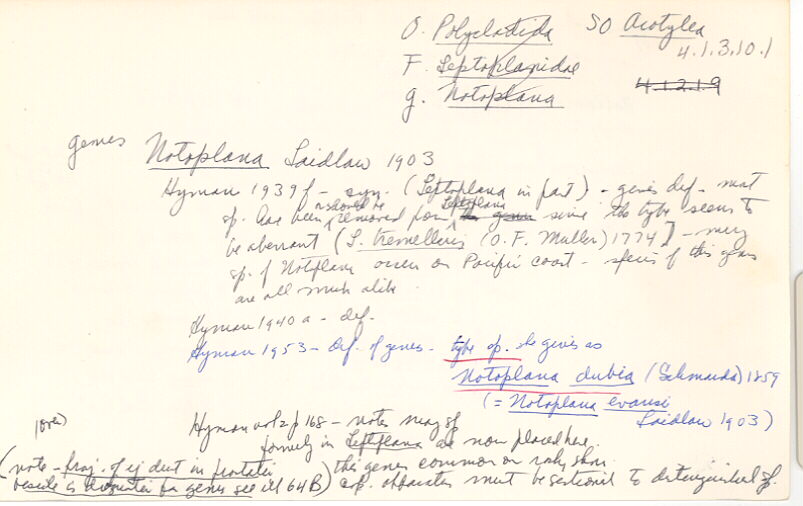 O. Polycladida SO Acotylea
4.1.3.10.1
F. Leptoplanidae
4.1.2.1.9
g. Notoplana
genus Notoplana Laidlaw 1903
Hyman 1939f - syn. (Leptoplana in part) - gives def - most
sp. have been removed from Leptoplana the genus since the type seems to
be aberrant (L. tremellaris (O.F. Muller) 1774] - many
sp. of Notoplana occur on Pacific coast - species of this genus
are all much alike
Hyman 1940a - def.
Hyman 1953 - Def. of genus - type sp. she gives as
Notoplana dubia (Schmarda) 1859
(= Notoplana evansi
Laidlaw 1903)
(over)
Hyman vol 2 p 168 - notes many sp
formerly in Leptoplana are now placed here.
this genus common on rocky shores.
(note - proj. of ej duct in prostatic
vesicle is for genus see ill 64B)
cop. apparatus must be sectioned to distinguish sp.